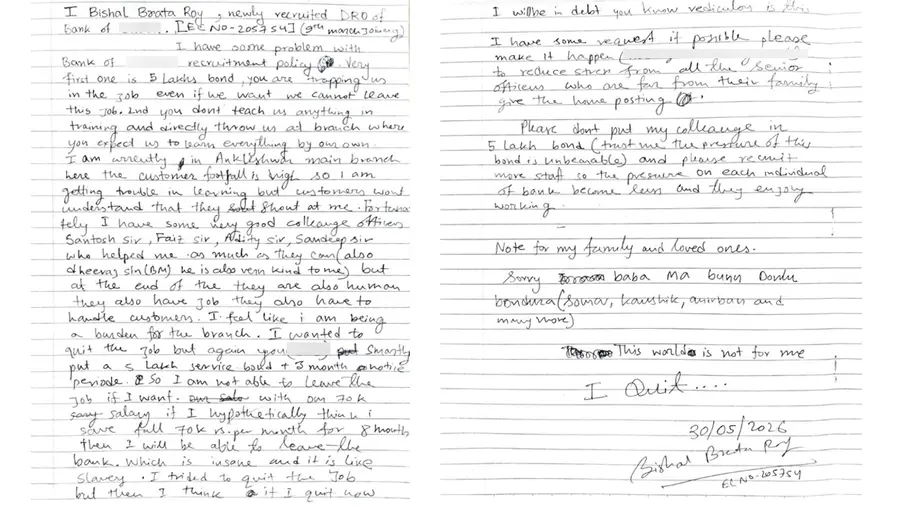 I Bishal Brata Roy, newly recruited DRO of
Bank of . [EC NO-205754] (9th march joining)
I have some problem with
Bank of recruitment policy. Very
first one is 5 Lakhs bond, you are trapping us
in the job even if we want we cannot leave
this job. 2nd you dont teach us anything in
training and directly throw us at branch where
you expect us to learn everything by our own.
I am currently in Ankleshwar main branch
here the customer footfall is high so I am
getting trouble in learning but customers wont
understand that they shout at me. Fortuna
tely I have some very good colleauge officers
Santosh sir, Faiz sir, Aditya sir, Sandeep sir
who helped me as much as they can (also
dheeraj sir (BM) he is also very kind to me) but
at the end of the they are also human
they also have job they also have to
handle customers. I feel like i am being
a burden for the branch. I wanted to
quit the job but again you put smartly
put a 5 Lakh service bond + 3 month notice
periode. So I am not able to leave the
job if I want. with our 70k
salary if I hypothetically think i
save full 70k rs. per month for 8 months
then I will be able to leave the
bank. Which is insane and it is like
slavery. I trided to quit the Job
but then I think if I quit now
I will be in debt you know rediculas is this
I have some request if possible please
make it happen (
to reduce stress from all the "senior
officers who are far from their family
give the home posting.
Please dont put my colleauge in
5 Lakh bond (trust me the pressure of this
bond is unbearable) and please recruit
more staff so the pressure on each individual
of bank become less and they enjoy
working.
Note for my family and loved ones.
Sorry baba Ma bunu
bondhura (Somar, kaushik, anirban and
many more)
This world is not for me
I Quit....
30/05/2026
Bishal Brata Roy
EC NO-205754